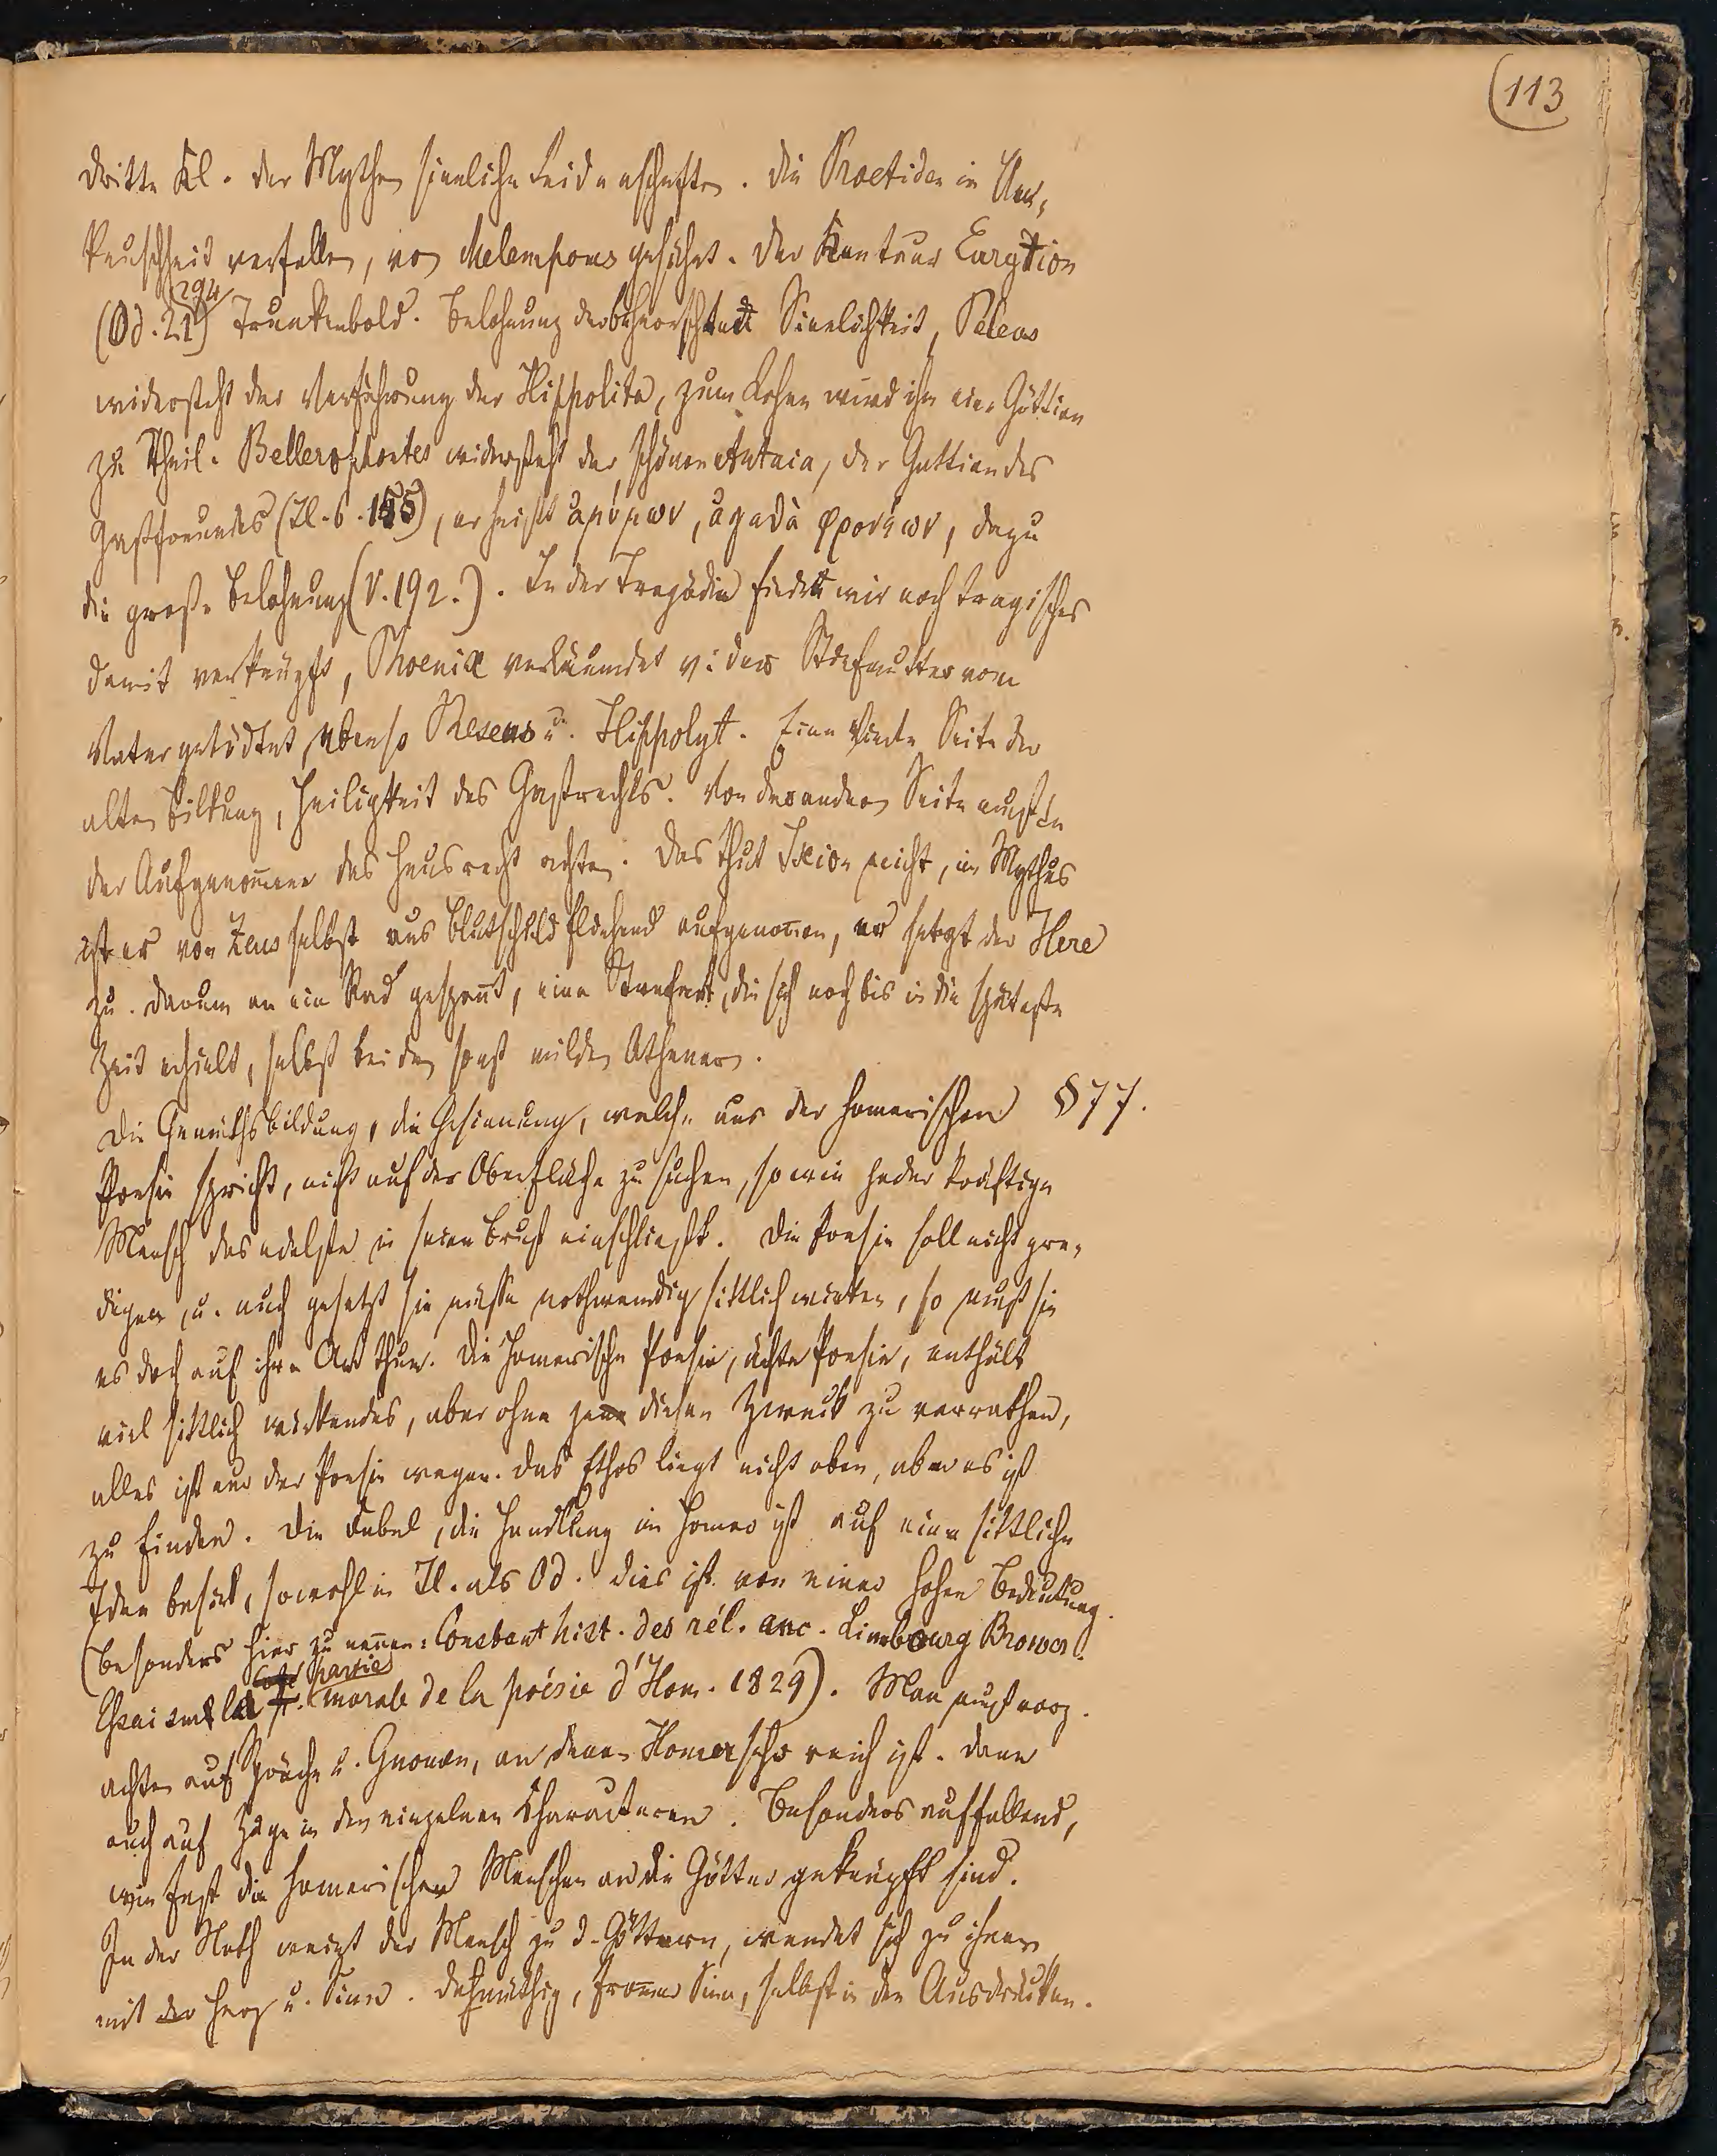 (113
dritte Kl. der Mythen sinnliche Leidenschaften. Die Proetiden in Un-
keuschheit verfallen, von Melampous gesühnt. Der Kentaur Eurytion
(Od. 21, 294) Trunkenbold. Belohnung der beherrschten Sinnlichkeit, Peleus
widersteht der Verführung der Hippolita, zum Lohne wird ihm eine Göttinn
zu Theil. Bellerophontes widersteht der schönen Antaia, der Gattinn des
Gastfreundes (Il. 6. 155), er heißt ἀμύμων, ἀγαθὰ φρονέων, dazu
die große Belohnung (V. 192.). In der Tragödie finden wir noch tragisches
damit verknüpft, Phoenix verläumdet v. der Stiefmutter vom
Vater getödtet, ebenso Theseus u. Hippolyt. Eine vierte Seite der
alten Bildung, Heiligkeit des Gastrechts. Von der andern Seite mußte
der Aufgenom̅ene das Hausrecht achten. Das thut Ixion nicht, im Mythus
ist er von Zeus selbst aus Blutschuld flehend aufgenom̅en, er setzt der Here
zu. Darum an ein Rad gespan̅t, eine Strafart, die sich noch bis in die späteste
Zeit erhielt, selbst bei den sonst milden Athenern.
Die Gemüthsbildung, die Gesinnung, welche aus der homerischen §77.
Poesie spricht, nicht auf der Oberfläche zu suchen, so wie jeder kräftige
Mensch das edelste in seine Brust einschließt. Die Poesie soll nicht pre-
digen, u. auch gesetzt sie müsse nothwendig sittlich wirken, so muß sie
es doch auf ihre Art thun. Die Homerische Poesie, ächte Poesie, enthält
viel sittlich wirkendes, aber ohne je diesen Zweck zu verrathen,
alles ist nur der Poesie wegen. Das Ethos liegt nicht oben, aber es ist
zu finden. Die Fabel, die Handlung im Homer ist auf eine sittliche
Idee basirt, sowohl in Il. als Od. Dies ist von einer hohen Bedeutung.
(Besonders hier zu nen̅en: Constant hist. des rél. anc. Limbourg Brower
Essai sur la partie morale de la poésie d'Hom. 1829). Man muß vorz.
achten auf Sprüche u. Gnomen, an denen Homer sehr reich ist. Dann
auch auf Züge in den einzelnen Characteren. Besonders auffallend,
wie fest die homerischen Menschen an die Götter geknüpft sind.
In der Noth weint der Mensch zu d. Göttern, wendet sich zu ihnen
mit Herz u. Sinn. Dehmüthig, from̅er Sinn, selbst in den Ausdrücken.